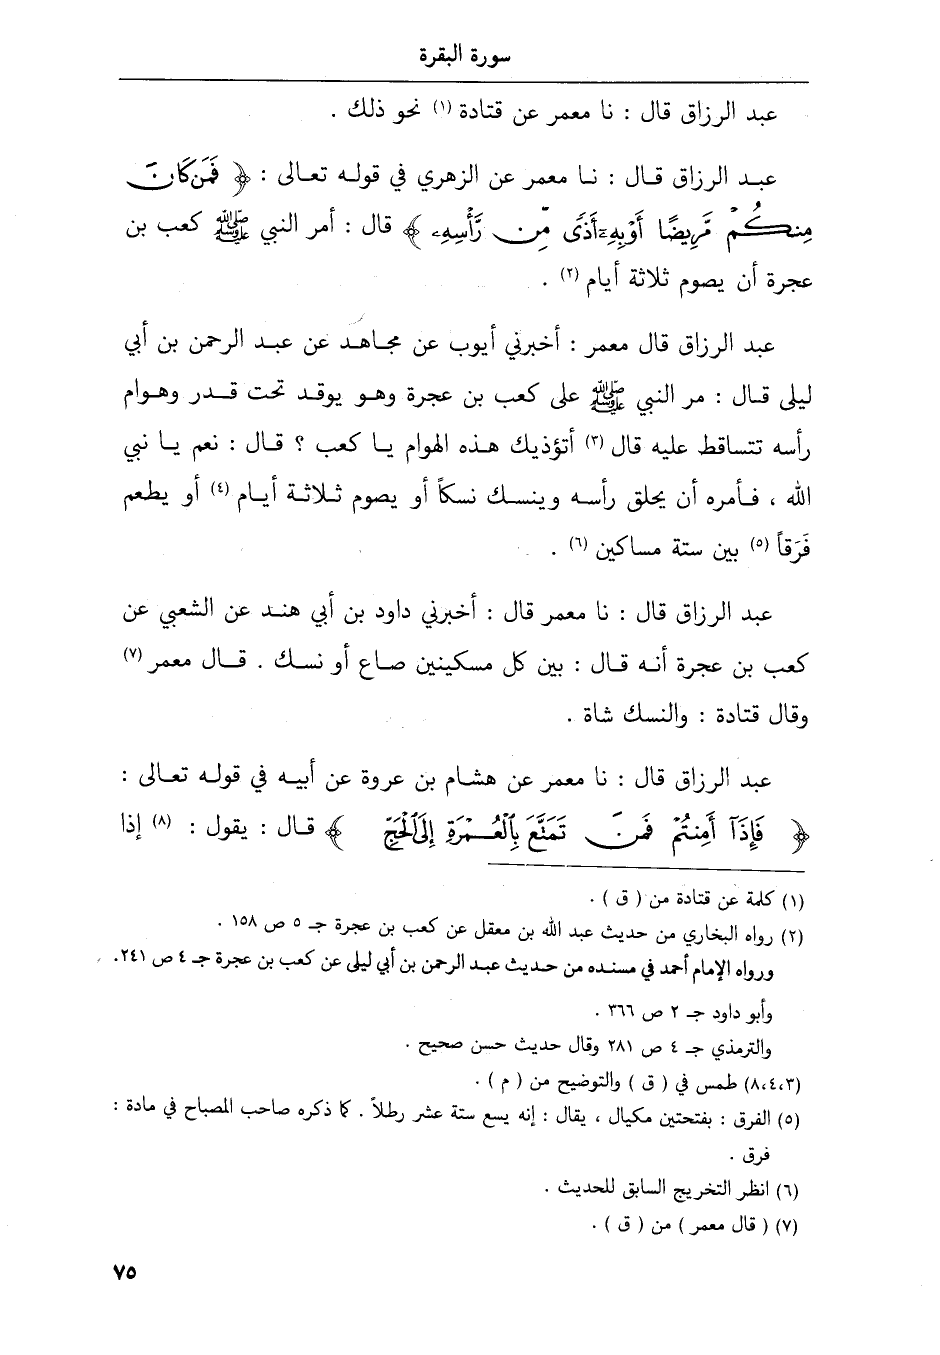 سورة البقرة
عبد الرزاق قال : نا معمر عن قتادة (١) نحو ذلك .
عبـد الرزاق قـال : نـا معمر عن الزهري في قولـه تعـالى : ﴿ فَمَن كَانَ
مِنكُم مَّرِيضًا أَوْ بِهِۦٓ أَذًى مِّن رَّأْسِهِۦ ﴾ قال : أمر النبي ﷺ كعب بن
عجرة أن يصوم ثلاثة أيام (٢) .
عبد الرزاق قال معمر : أخبرني أيوب عن مجاهـد عن عبـد الرحمن بن أبي
ليلى قـال : مر النبي ﷺ على كعب بن عجرة وهـو يوقـد تحت قـدر وهـوام
رأسه تتساقط عليه قال (٣) أتؤذيك هـذه الهوام يـا كعب ؟ قـال : نعم يـا نبي
الله ، فـأمره أن يحلق رأسـه وينسـك نسكاً أو يصوم ثـلاثـة أيـام (٤) أو يطعم
فَرَقاً (٥) بين ستة مساكين (٦) .
عبد الرزاق قال : نا معمر قال : أخبرني داود بن أبي هنـد عن الشعبي عن
كعب بن عجرة أنـه قـال : بين كل مسكينين صـاع أو نسـك . قـال معمر (٧)
وقال قتادة : والنسك شاة .
عبد الرزاق قال : نا معمر عن هشام بن عروة عن أبيـه في قولـه تعـالى :
﴿ فَإِذَآ أَمِنتُمْ فَمَن تَمَتَّعَ بِٱلْعُمْرَةِ إِلَى ٱلْحَجِّ ﴾ قـال : يقول : (٨) إذا
(١) كلمة عن قتادة من ( ق ) .
(٢) رواه البخاري من حديث عبد الله بن معقل عن كعب بن عجرة جـ ٥ ص ١٥٨ .
ورواه الإمام أحمد في مسنده من حديث عبد الرحمن بن أبي ليلى عن كعب بن عجرة جـ ٤ ص ٢٤١ .
وأبو داود جـ ٢ ص ٣٦٦ .
والترمذي جـ ٤ ص ٢٨١ وقال حديث حسن صحيح .
(٨،٤،٣) طمس في ( ق ) والتوضيح من ( م ) .
(٥) الفرق : بفتحتين مكيال ، يقال : إنه يسع ستة عشر رطلاً . كا ذكره صاحب المصباح في مادة :
فرق .
(٦) انظر التخريج السابق للحديث .
(٧) ( قال معمر ) من ( ق ) .
٧٥